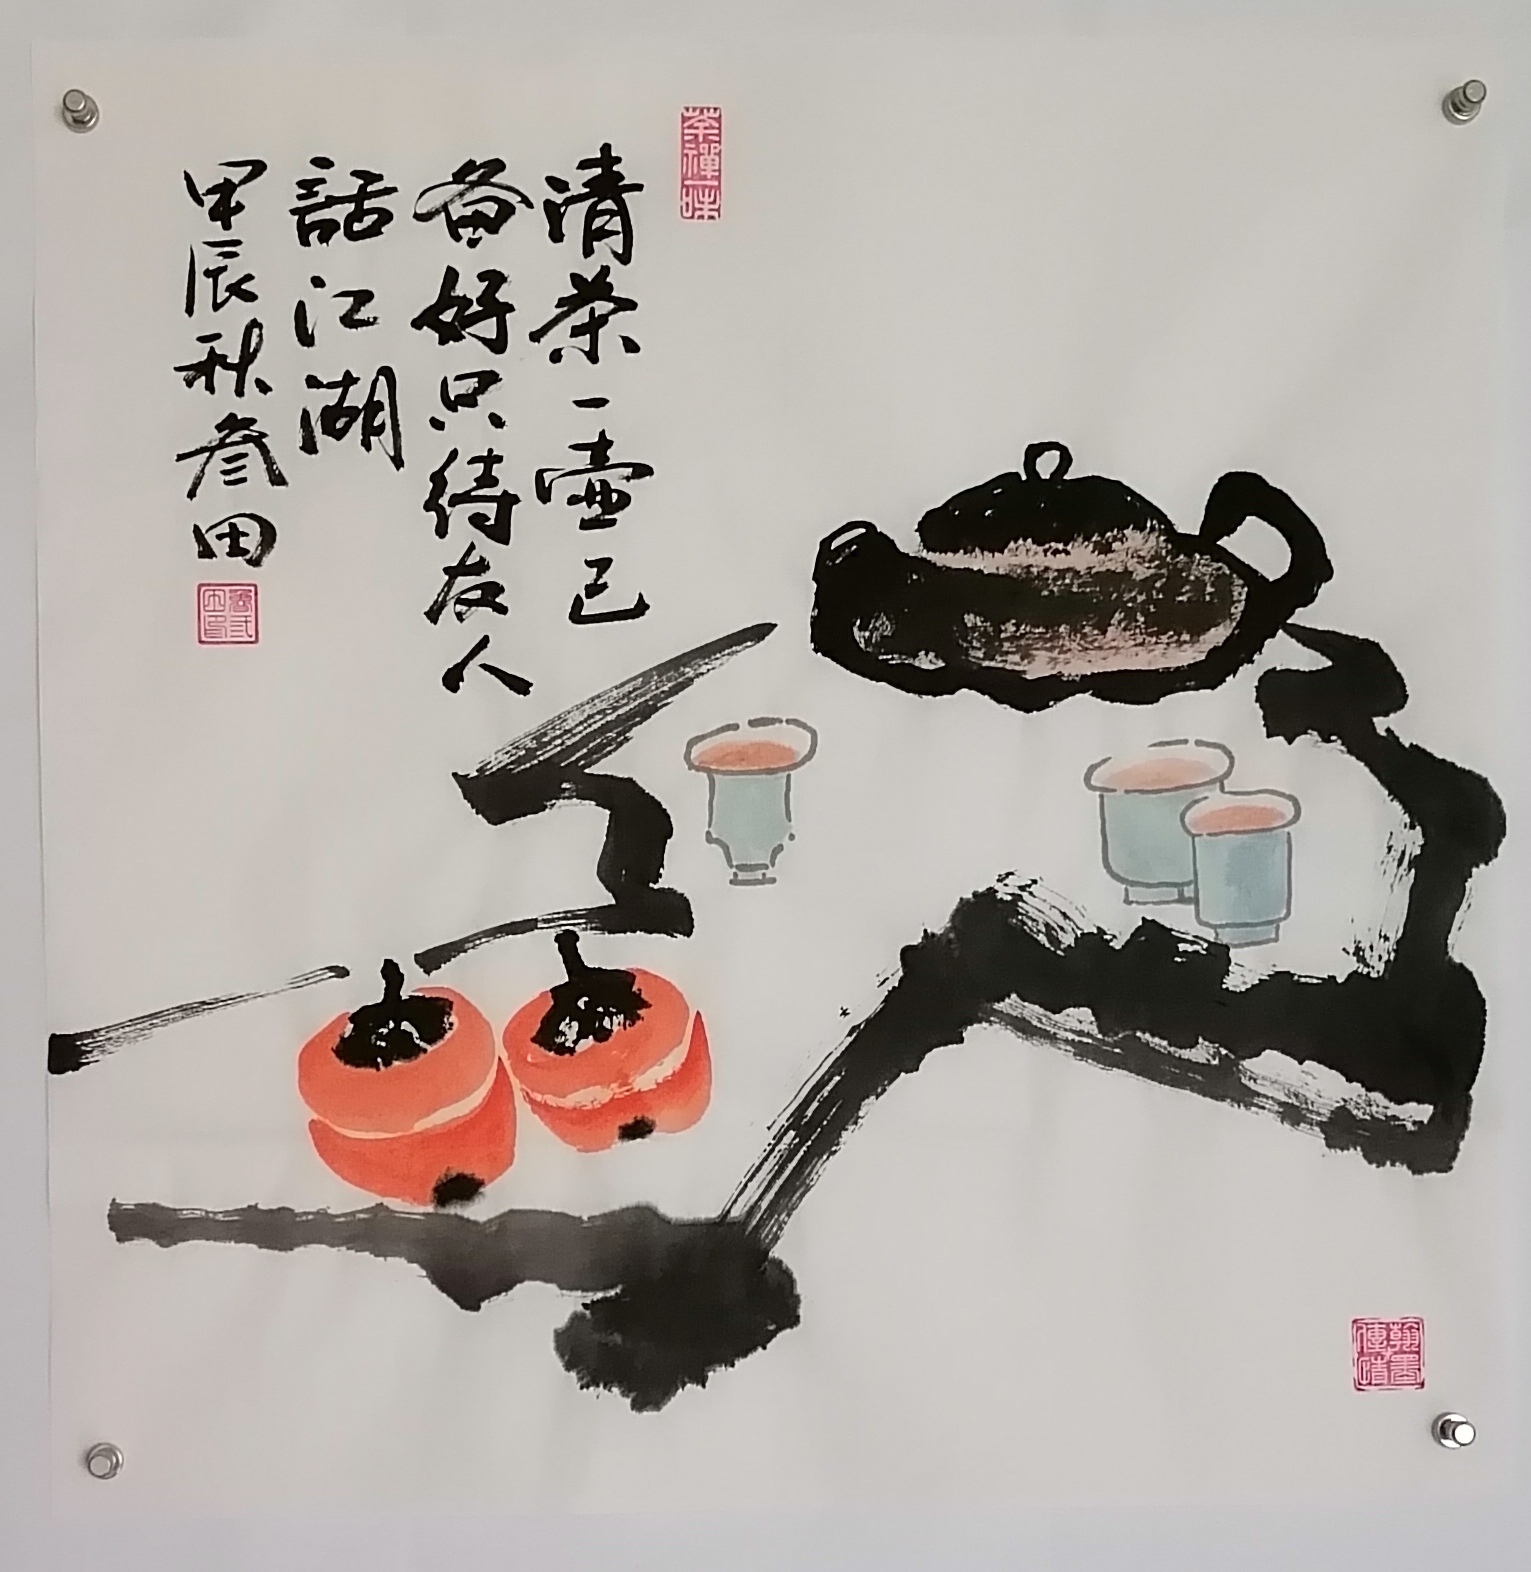 茶禪一味
清茶一壺已
备好只待友人
話江湖
甲辰秋叁田
翰墨
傳情